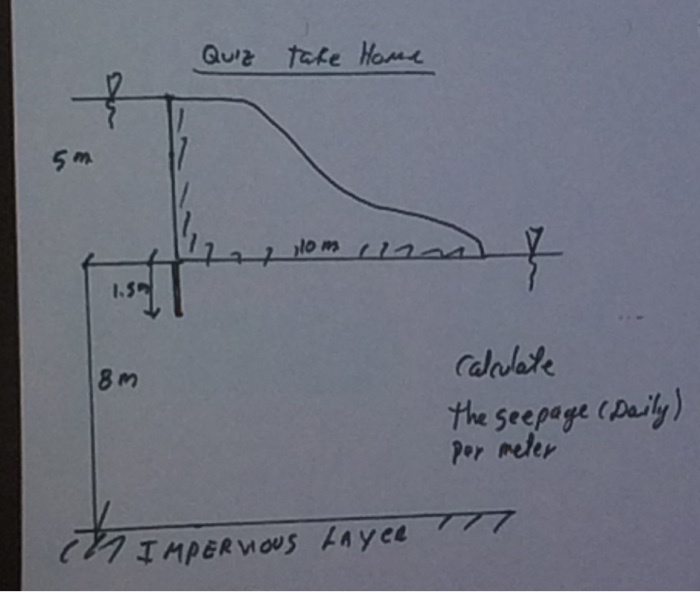 Quiz Take Home
5 m
10 m
1.5m
8 m
Calculate
the seepage (Daily)
per meter
IMPERVIOUS LAYER